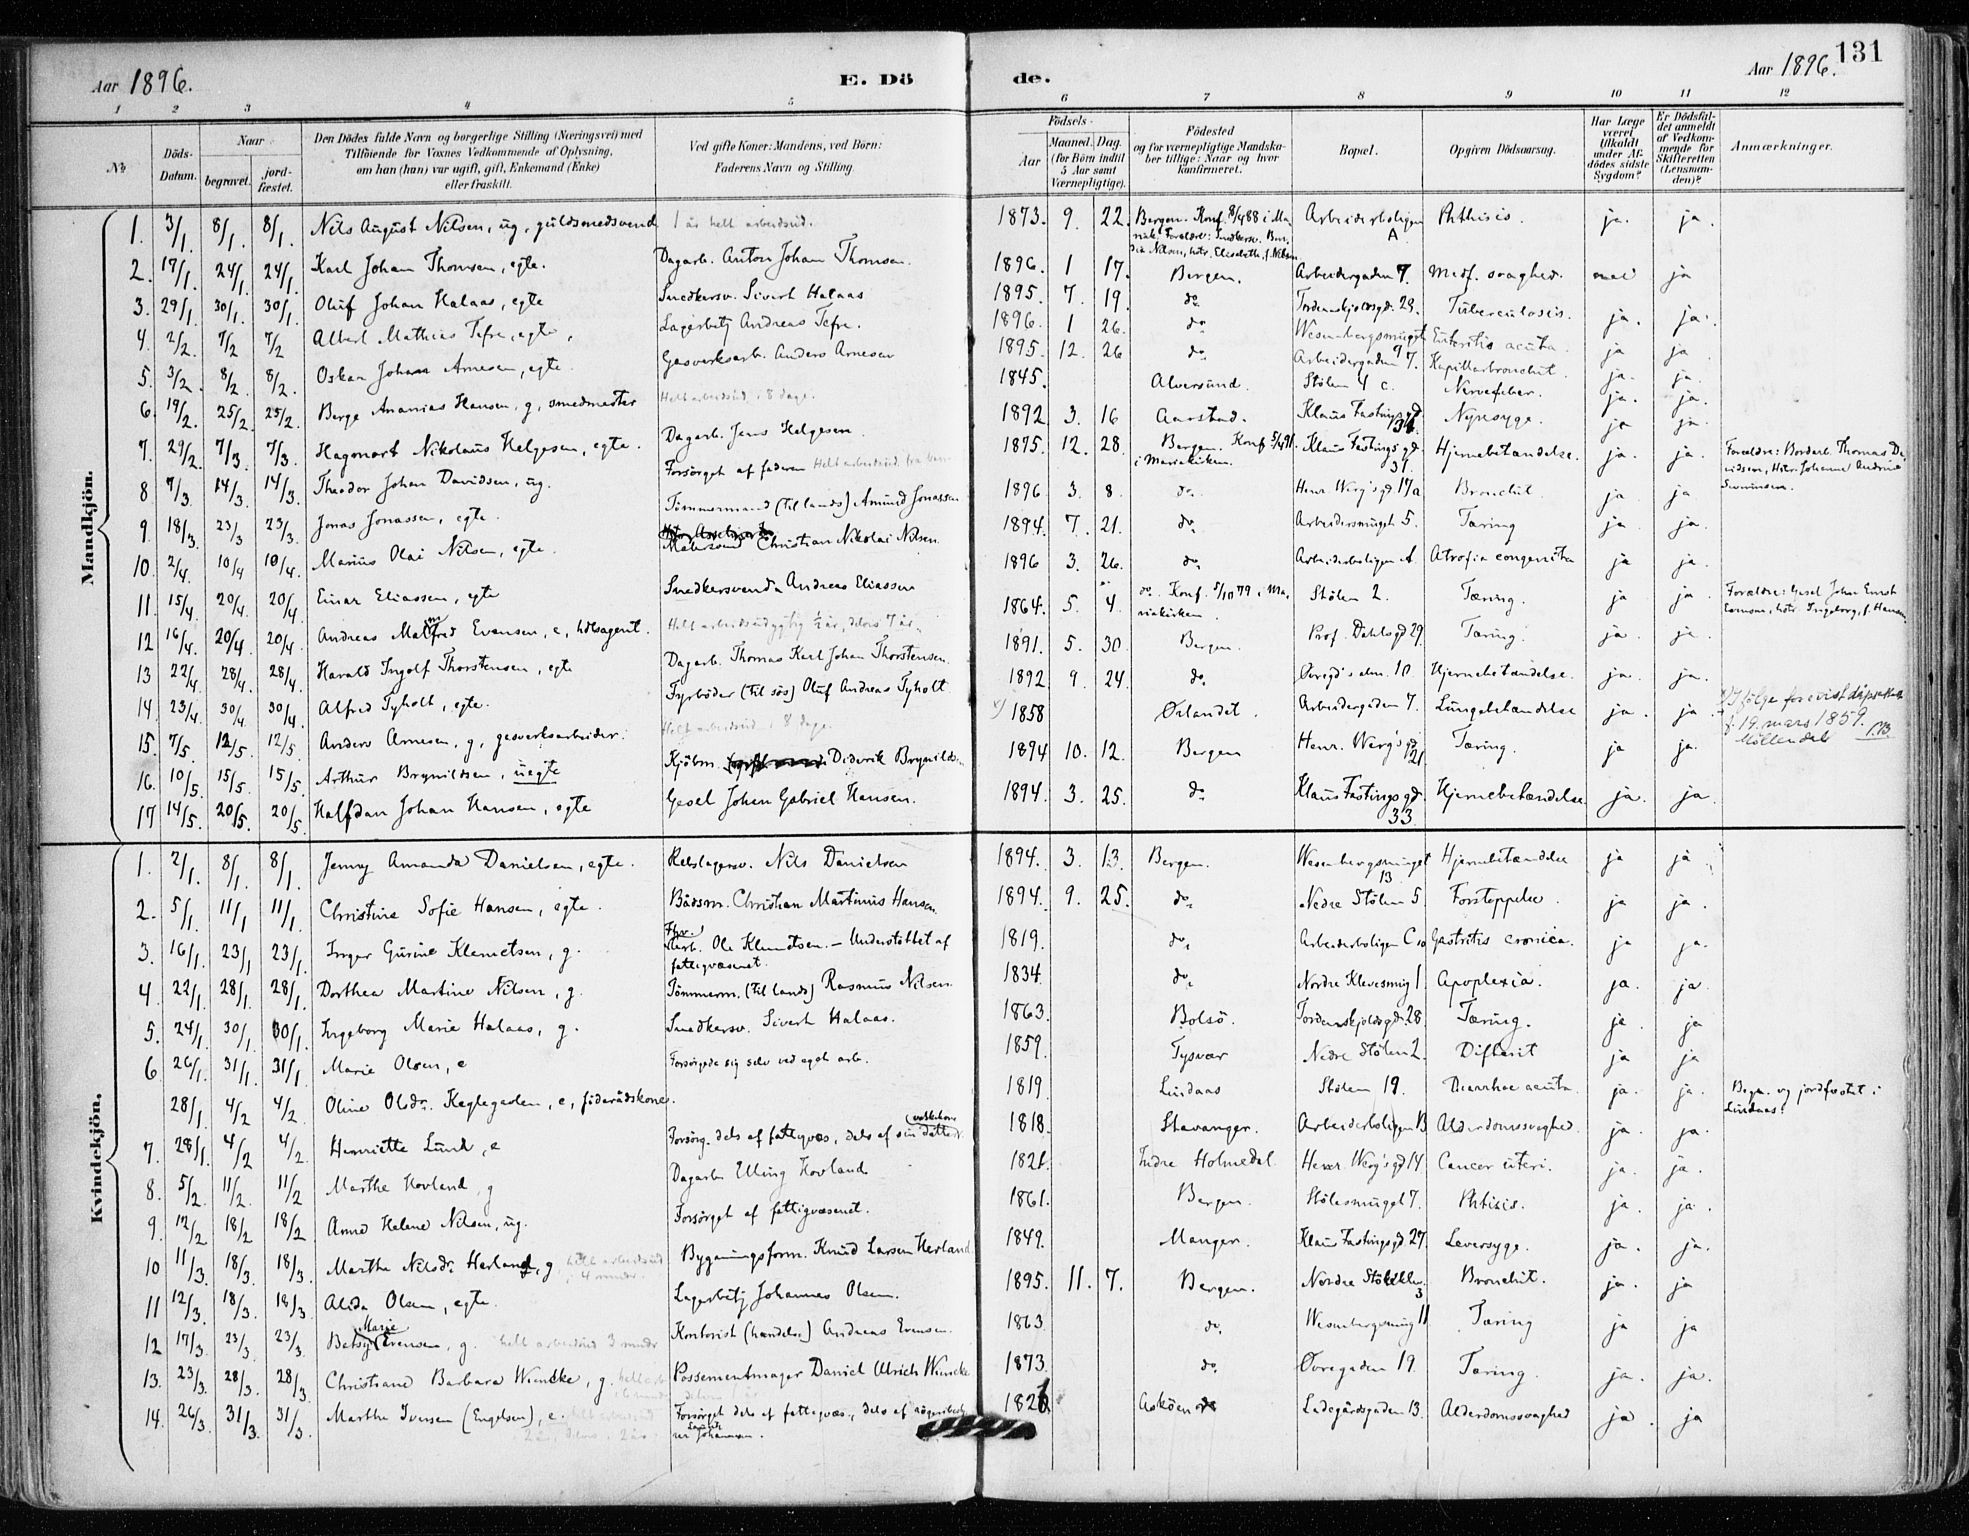 Aar 1896. E. Dö de. Aar 1896. 131
1 2 3 4 5 6 7 8 9 10 11 12
No. Döds-Datum. Naar begravet. jordfæstet. Den Dödes fulde Navn og borgerlige Stilling (Næringsvei) med Tilföiende for Voxnes Vedkommende af Oplysning, om han (hun) var ugift, gift, Enkemand (Enke) eller fraskilt. Ved gifte Koner: Mandens, ved Börn: Faderens Navn og Stilling. Födsels- Aar Maaned. Dag. (for Börn indtil 5 Aar samt Værnepligtige). Födested og for værnepligtige Mandskaber tillige: Naar og hvor konfirmeret. Bopæl. Opgiven Dödsaarsag. Har Læge været tilkaldt under Afdödes sidste Sygdom? Er Dödsfaldet anmeldt af Vedkommende for Skifteretten (Lensmanden)? Anmærkninger.
Mandkjön.
1. 3/1. 8/1. 8/1. Nils August Nilsen, ug, guldsmedsvend 1 år helt arbeidsud. 1873. 9. 22. Bergen. Konf. 8/4 88 i Mariek. Forældre: Snedkersv. Nilsen, hstr. Elisabeth, f. Nilsen Arbeiderboligen A Phthisis. ja. ja.
2. 17/1. 24/1. 24/1. Karl Johan Thomsen, egte. Dagarb. Anton Johan Thomsen. 1896. 1 17. Bergen. Arbeidergaden 7. Medf. svaghed. nei ja
3. 29/1. 30/1. 30/1. Oluf Johan Halaas, egte Snedkersv. Sivert Halaas 1895. 7. 19. do Tordenskjoldsgd. 28. Tuberculosis. ja. ja.
4. 2/2. 7/2 7/2 Albert Mathias Tefre, egte. Lagerbetj Andreas Tefre. 1896. 1 26. do Wesenbergsmuget 9 Enteritis acuta. ja ja
5. 3/2. 8/2. 8/2. Oskar Johan Arnesen, egte. Gasverksarb. Anders Arnesen 1895. 12. 26 do Arbeidergaden 7. Kapillarbronchit. ja. ja.
6. 19/2. 25/2. 25/2. Berge Ananias Hansen, g, smedmester Helt arbeidsud. i 8 dage. 1845. Alversund. Stölen 4 c. Nervefeber. ja. ja.
7. 29/2. 7/3. 7/3. Hagonart Nikolaus Helgesen, egte. Dagarb. Jens Helgesen. 1892 3. 16 Aarstad. Klaus Fastingsgd 34. Nyresyge. ja ja.
8 7/3. 14/3. 14/3. Theodor Johan Davidsen, ug. Forsörget af faderen Helt arbeidsud. fra barn 1875. 12. 28 Bergen. Konf. 5/4 91 i Mariekirken. Klaus Fastingsgd 31. Hjernebetændelse. ja. ja. Forældre: Bordarb. Thomas Davidsen, Hstr. Johanne Andrine
9 18/3. 23/3 23/3. Jonas Jonassen, egte. Tömmermand (til lands) Amund Jonassen 1896. 3. 8. do. Henr. Werg'sgd 17a Bronchit. ja ja
10. 2/4. 10/4 10/4. Marius Olai Nilsen, egte. Malersvend Christian Nikolai Nilsen. 1894. 7. 21. do. Arbeidersmuget 5. Tæring ja. ja.
11. 15/4. 20/4. 20/4. Einar Eliassen, egte Snedkersvend Andreas Eliassen 1896 3. 26. do. Arbeiderboligen A. Atrofia congenita ja ja.
12 16/4. 20/4. 20/4. Andreas Manfred Evensen, e, hdlsagent. Helt arbeidsudygtig 1/2 år, delvis 7 år. 1864. 5. 4. do. Konf. 5/10 79 i Mariekirken. Stölen 2. Tæring. ja ja. Forældre: Gesel Johan Ernst Evensen, hstr. Ingeborg, f. Hansen
13 22/4. 28/4. 28/4. Harald Ingolf Thorstensen, egte Dagarb. Thomas Karl Johan Thorstensen. 1891. 5. 30 Bergen. Prof. Dahlsgd 29. Tæring. ja. ja.
14. 23/4. 30/4. 30/4. Alfred Tyholt, egte. Fyrböder (til sös) Oluf Andreas Tyholt. 1892 9. 24. do. Övregd's alm. 10 Hjernebetændelse. ja. ja.
15. 7/5. 12/5. 12/5 Anders Arnesen, g, gasverksarbeider. Helt arbeidsud i 8 dage x) 1858 Ørlandet. Arbeidergaden 7. Lungebetændelse ja. ja. x) Ifölge forevist dåpsattest f. 19. mars 1859. Möllendal
16. 10/5. 15/5. 15/5. Arthur Brynildsen, uegte Kjöbm. Diderik Brynildsen 1894 10. 12. Bergen Henr. Werg'sgd 21. Tæring. ja ja.
17 14/5. 20/5. 20/5. Halfdan Johan Hansen, egte Gesel Johan Gabriel Hansen. 1894. 3. 25. do Klaus Fastingsgd. 33. Hjernebetændelse. ja. ja.
Kvindekjön.
1. 2/1. 8/1. 8/1. Jenny Amanda Danielsen, egte. Rebslagersv. Nils Danielsen 1894. 3. 13. Bergen. Wesenbergsmuget 13 Hjernebetændelse ja ja
2. 5/1. 11/1 11/1. Christine Sofie Hansen, egte. Bådsm. Christian Martinius Hansen. 1894. 9. 25. do. Nedre Stölen 5 Forstoppelse. ja ja.
3. 16/1. 23/1 23/1. Inger Gurine Klemetsen, g. Fhv. arb. Ole Klemetsen. – Understöttet af fattigvæsenet. 1819. do. Arbeiderboligen C 10 Gastritis cronica. ja ja.
4. 22/1. 28/1. 28/1. Dorthea Martine Nilsen, g. Tömmerm. (til lands) Rasmus Nilsen. 1834. do. Nordre Klevesmug 1. Apoplexia. ja. ja
5. 24/1. 30/1. 30/1. Ingeborg Marie Halaas, g. Snedkersv. Sivert Halaas. 1863. Bolsö. Tordenskjoldsgd. 28. Tæring. ja. ja
6 26/1. 31/1. 31/1. Marie Olsen, e Forsörgede sig selv ved eget arb. 1859. Tysvær Nedre Stölen 2. Difterit ja ja
28/1. 4/2 4/2 Oline Olsdr. Keglegarden, e, föderådskone. 1819 Lindaas Stölen 19. Diarrhoe acuta ja. ja. Begr. og jordfæstet i Lindaas.
7. 28/1. 4/2 4/2. Henriette Lund, e Forsörg. dels af fattigvæs., dels af sin datter 1818. Stavanger. Arbeiderboligen B Alderdomssvaghed. ja. ja.
8. 5/2. 11/2. 11/2 Marthe Hovland, g Dagarb. Elling Hovland 1821. Indre Holmedal. Henr. Werg'sgd 14 Cancer uteri. ja. ja.
9. 12/2 18/2 18/2 Anne Helene Nilsen, ug. Forsörget af fattigvæsenet. 1861. Bergen. Stölesmuget 7. Phtisis. ja. ja.
10 11/3. 18/3. 18/3. Marthe Nilsdr. Herland, g. helt arbeidsud i 4 mndr. Bygningsform. Knud Larsen Herland 1849. Manger. Klaus Fastingsgd 27. Leversyge. ja. ja.
11 12/3. 18/3. 18/3. Alida Olsen, egte. Lagerbetj Johannes Olsen. 1895. 11. 7. Bergen. Nordre 3 Bronchit. ja. ja
12 17/3. 23/3 23/3. Betsy Marie Evensen, g. helt arbeidsud 3 mndr Kontorist (handels) Andreas Evensen. 1863 do. Wesenbergsmug 11 Tæring ja ja
13. 23/3. 28/3. 28/3 Christiane Barbara Wiencke, g. Possementmager Daniel Ulrich Wiencke 1873. do. Övregaden 19. Tæring. ja. ja.
14. 26/3. 31/3. 31/3. Marthe Iversen (Engelsen), e. helt arbeidsud 2 år, delvis 2 år. Forsörget dels af fattigvæs., dels af Johannesen. 1826 Asköen Ladegårdsgaden 13. Alderdomssvaghed ja. ja